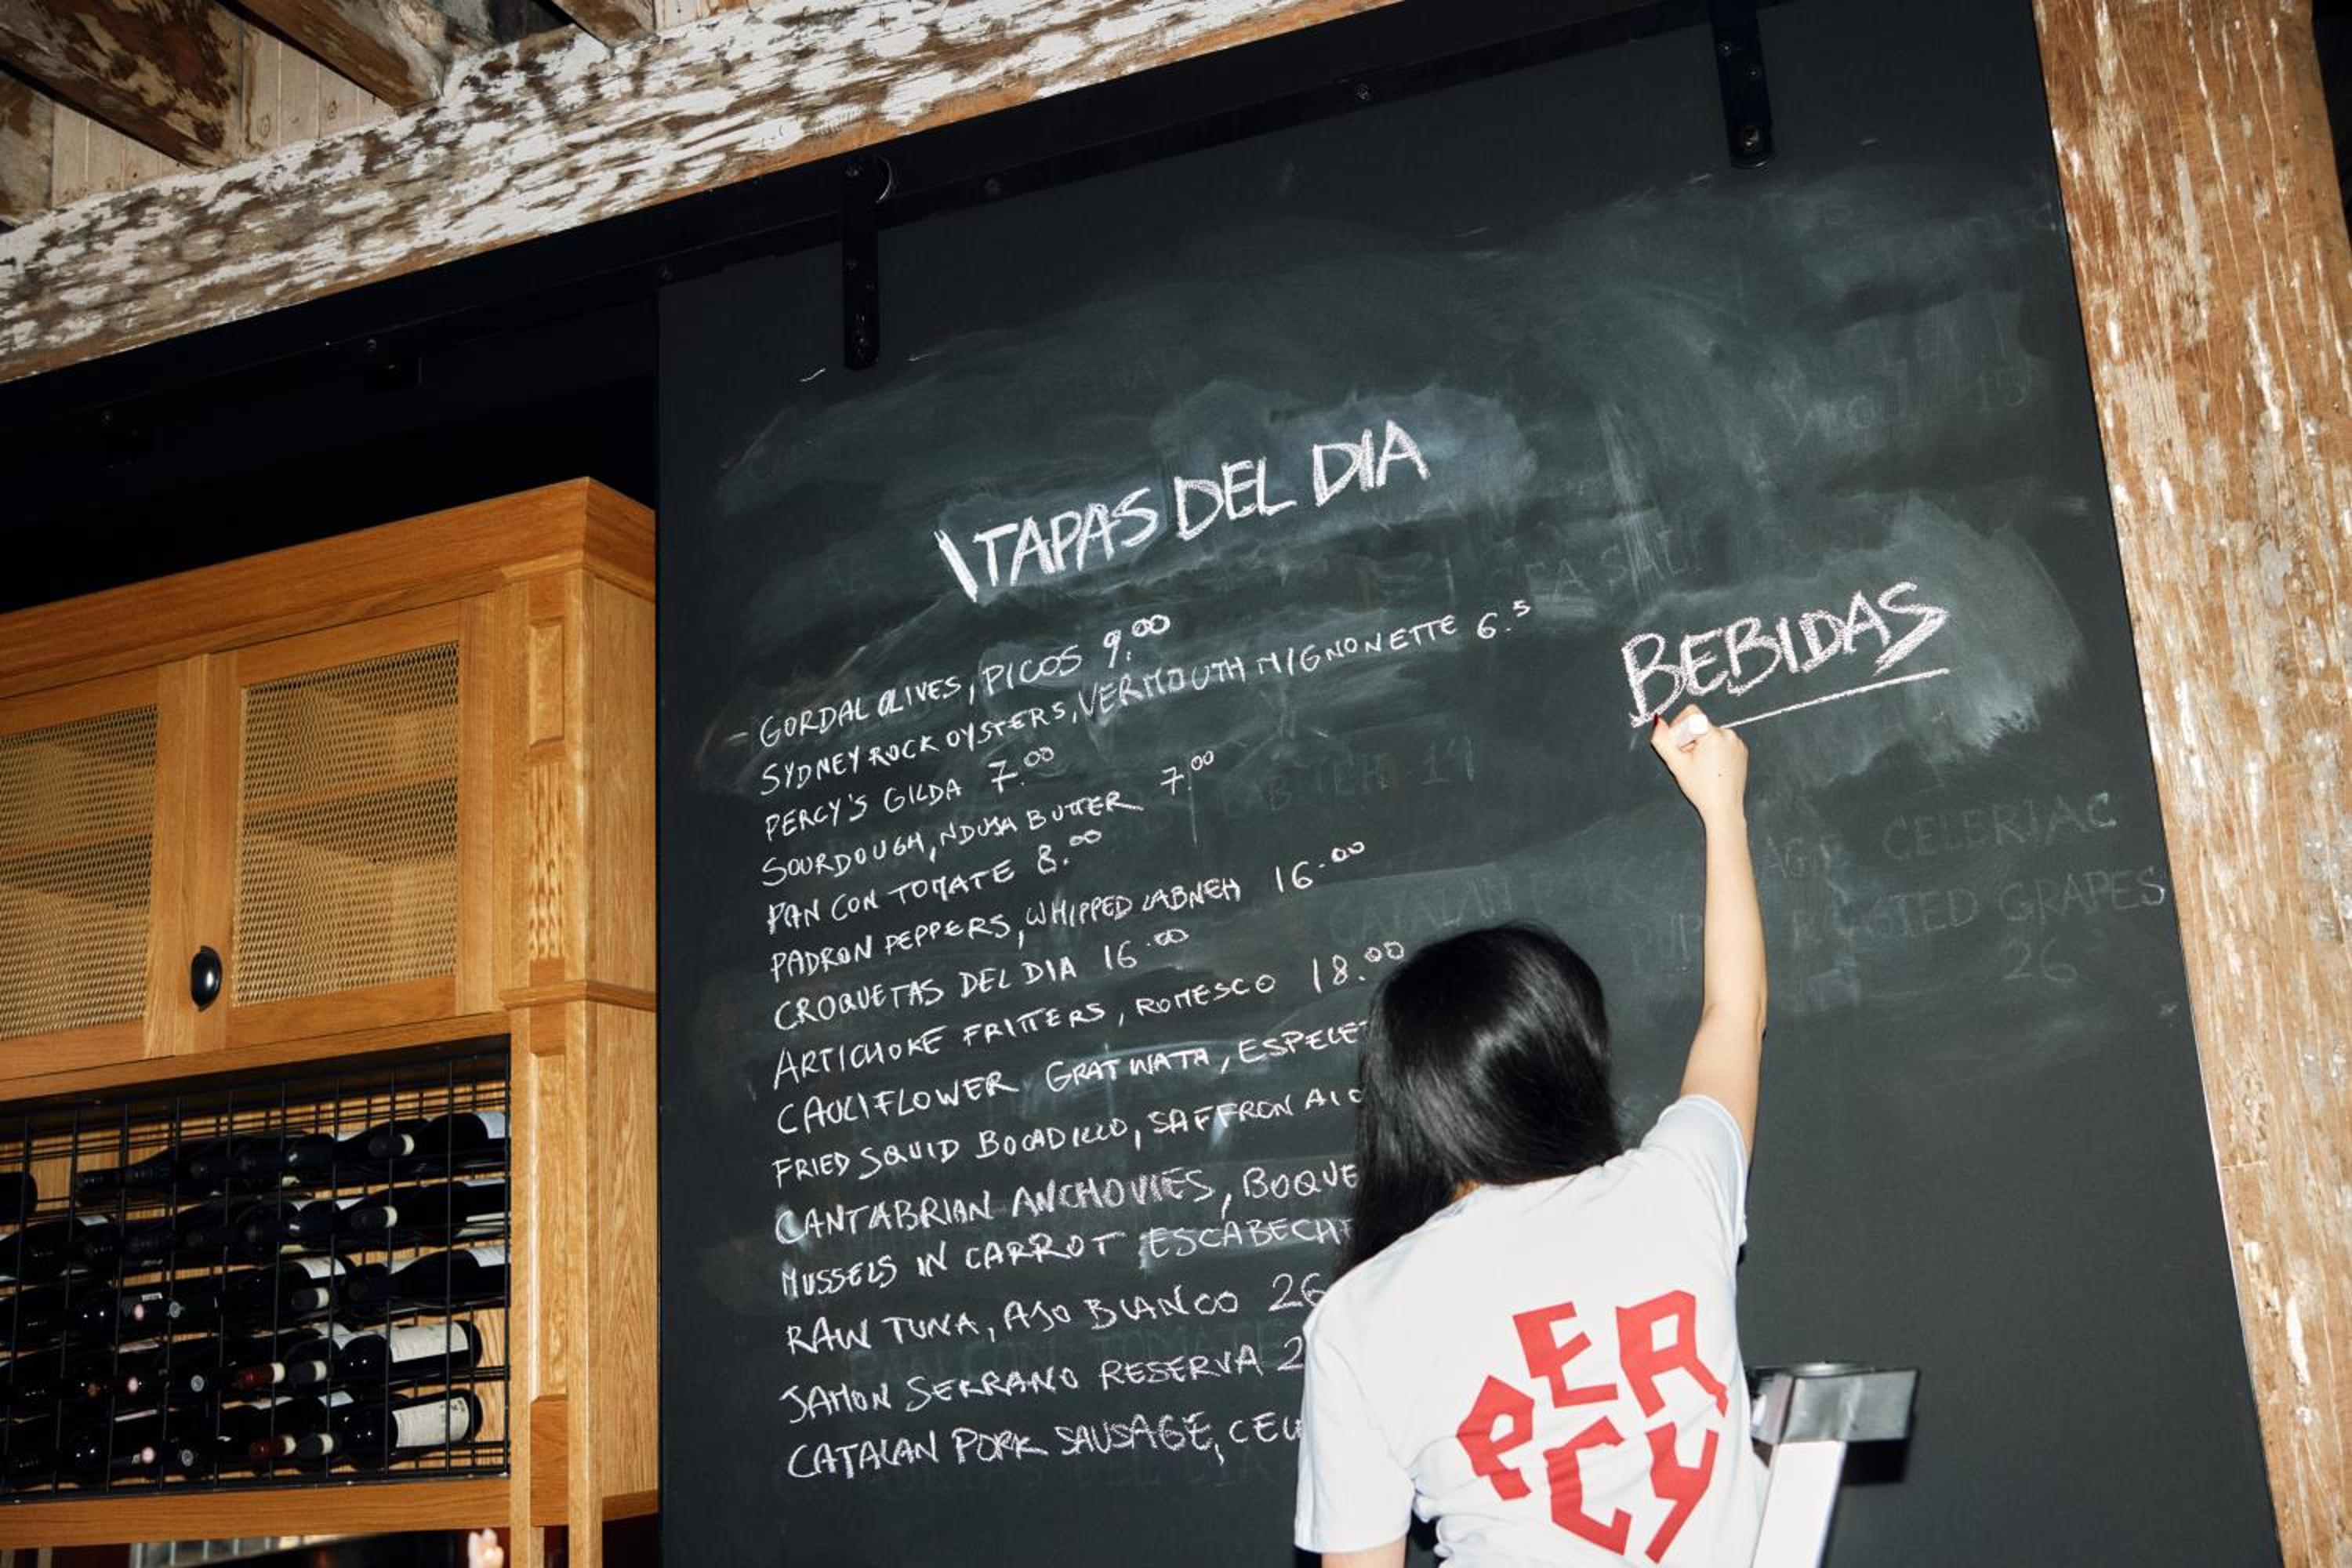 TAPAS DEL DIA
GORDAL OLIVES, PICOS 9.00
SYDNEY ROCK OYSTERS, VERMOUTH MIGNONETTE 6.5
PERCY'S GILDA 7.00
SOURDOUGH, NDUJA BUTTER 7.00
PAN CON TOMATE 8.00
PADRON PEPPERS, WHIPPED LABNEH 16.00
CROQUETAS DEL DIA 16.00
ARTICHOKE FRITTERS, ROMESCO 18.00
CAULIFLOWER GRATINATA, ESPELET
FRIED SQUID BOCADILLO, SAFFRON AIO
CANTABRIAN ANCHOVIES, BOQUE
MUSSELS IN CARROT ESCABECHE
RAW TUNA, AJO BLANCO 26
JAMON SERRANO RESERVA 2
CATALAN PORK SAUSAGE, CEL
BEBIDAS
CELERIAC
ROASTED GRAPES
26
PERCY